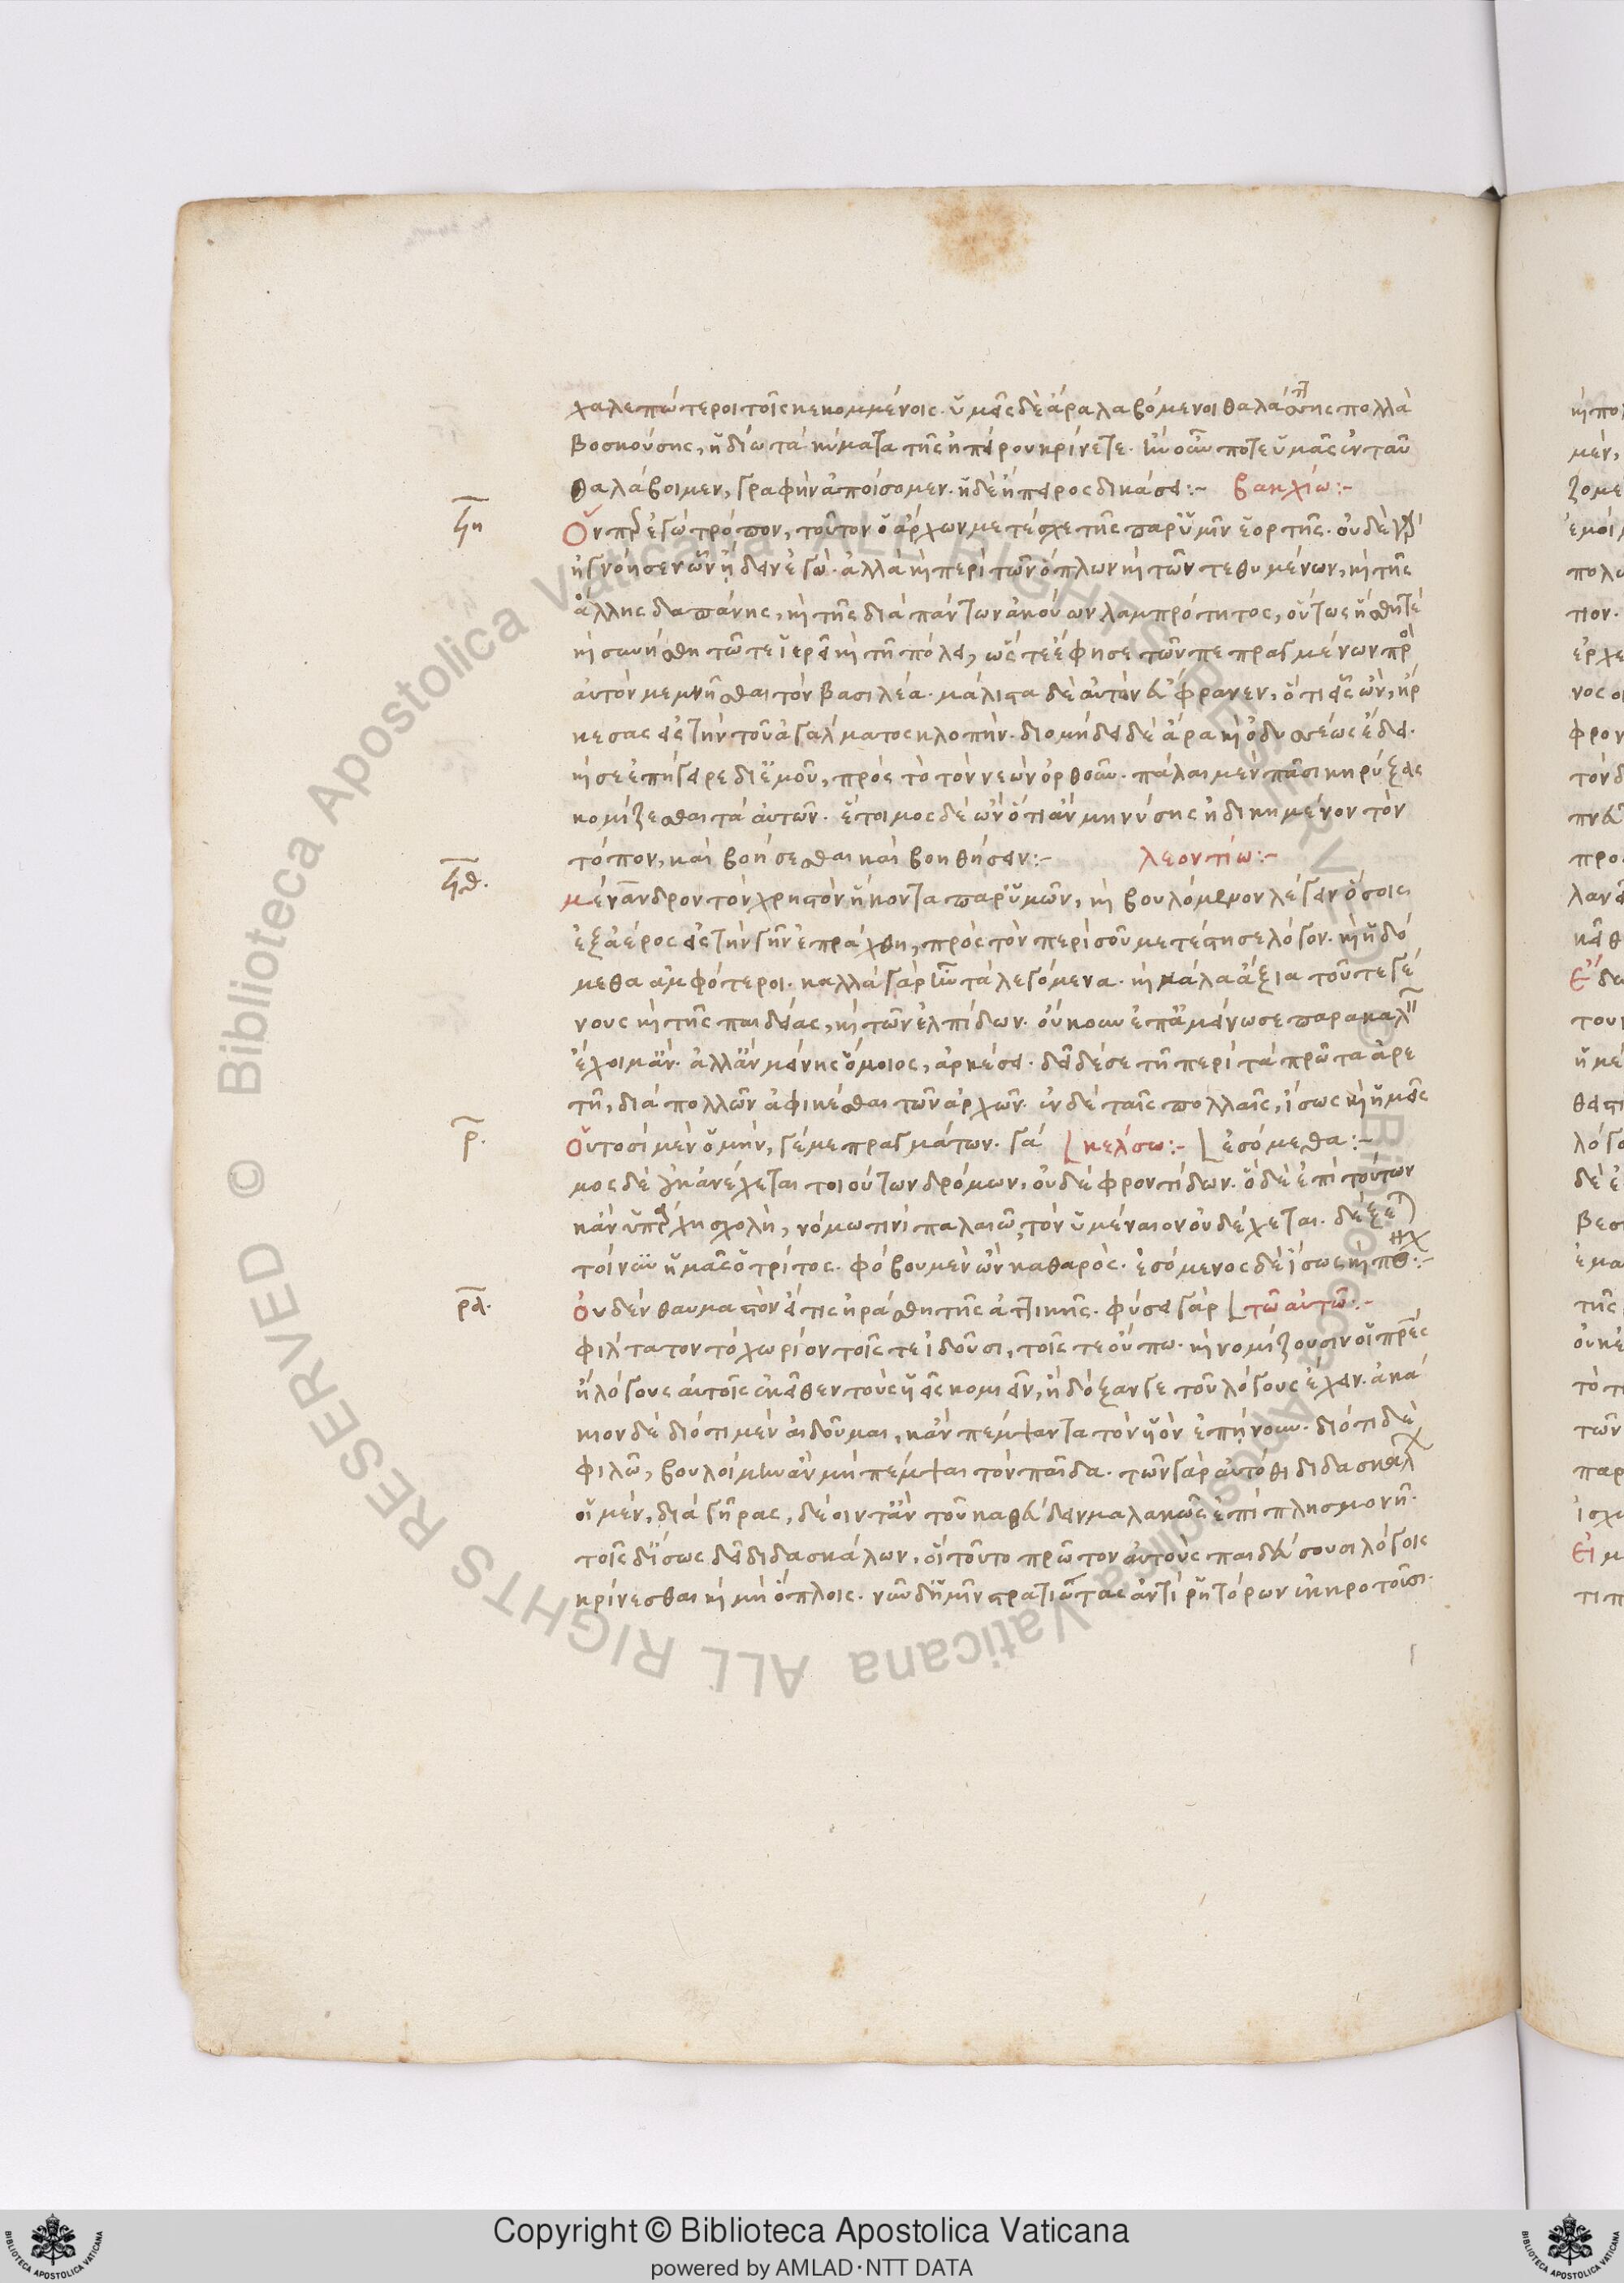 χαλεπώτεροι τοῖς κεκομμένοις. ὑμεῖς δὲ ἄρα λαβόμενοι θαλάττης πολλὰ
βοσκούσης, ἡδίω τὰ κύματα τῆς ἠπείρου κρίνετε. ἢν οὖν ποτε ὑμᾶς ἐνταῦ
θα λάβοιμεν, γραφὴν ἀποίσομεν. ἡ δὲ ἤπειρος δικάσει:– βακχίω:–
ϟη
Ὃν πρ ἐγὼ τρόπον, τοῦτον ὁ ἄρχων μετέσχε τῆς παρ' ὑμῖν ἑορτῆς. οὐδὲ γὰρ
ἠγνόησεν ὧν ᾔδειν ἐγώ. ἀλλὰ κ περὶ τῶν ὅπλων κ τῶν τεθυμένων, κ τῆς
ἄλλης δαπάνης, κ τῆς διὰ πάντων ἀκούων λαμπρότητος, οὕτως ἥσθητέ
κ συνήσθη τῶ τε ἱερεῖ κ τῆ πόλει, ὥστε ἔφησε τῶν πεπραγμένων πρὸ
αὐτὸν μεμνῆσθαι τὸν βασιλέα. μάλιστα δὲ αὐτὸν εὔφρανεν, ὅτι εἷς ὢν, ἤρ
κεσας εἰς τὴν τοῦ ἀγάλματος κλοπήν. διομήδει δὲ ἄρα κ ὀδυσσέως ἔδει.
κ σε ἐπήγειρε δι' ἐμοῦ, πρὸς τὸ τὸν νεὼν ὀρθοῦν. πάλαι μὲν πᾶσι κηρύξας
κομίζεσθαι τὰ αὑτῶν. ἕτοιμος δὲ ὢν ὅτι ἂν μηνύσης ἠδικημένον τὸν
τόπον, καὶ βοήσεσθαι καὶ βοηθήσειν:– λεοντίω:–
ϟθ.
μένανδρον τὸν χρηστὸν ἥκοντα παρ' ὑμῶν, κ βουλόμενον λέγειν ὅσοις
ἐξ ἀέρος εἰς τὴν γῆν ἐπράχθη, πρὸς τὸν περὶ σοῦ μετέστησε λόγον. κ ἡδό
μεθα ἀμφότεροι. καλλὰ γὰρ ἦν τὰ λεγόμενα. κ μάλα ἄξια τοῦ τε γέ
νους κ τῆς παιδείας, κ τῶν ἐλπίδων. οὔκουν ἐπ' ἀμείνω σε παρακαλεῖν
ἔχοιμ' ἄν. ἀλλ' ἂν μείνης ὅμοιος, ἀρκέσει. δεῖ δέ σε τῆ περὶ τὰ πρῶτα ἀρε
τῆ, διὰ πολλῶν ἀφικέσθαι τῶν ἀρχῶν. ἐν δὲ ταῖς πολλαῖς, ἴσως κ ἡμεῖς
ρ.
Οὑτοσὶ μὲν ὁ μὴν, γέμει πραγμάτων. γά κέλσω:– ἐσόμεθα:–
μος δὲ οὐκ ἀνέχεται τοιούτων δρόμων, οὐδὲ φροντίδων. ὁ δὲ ἐπὶ τούτων
κἂν ὑπάρχη σχολὴ, νόμω τινὶ παλαιῶ, τὸν ὑμέναιον οὐ δέχεται. δέξεται
τοίνυν ἡμᾶς ὁ τρίτος. φόβου μὲν ὢν καθαρός. ἐσόμενος δὲ ἴσως κ
ρα.
Οὐδὲν θαυμαστὸν εἴ τις ἠράσθη τῆς ἀττικῆς. φύσει γὰρ τῶ αὐτῶ:–
φίλτατον τὸ χωρίον τοῖς τε ἰδοῦσι, τοῖς τε οὔπω. κ νομίζουσιν οἱ πρες
ἢ λόγους αὐτοῖς ἐκεῖθεν τοὺς υἱεῖς κομιεῖν, ἢ δόξαν γε τοῦ λόγους ἔχειν. ἀκά
κιον δὲ διότι μὲν αἰδοῦμαι, κἂν πέμψαντα τὸν υἱὸν ἐπῄνουν. διότι δὲ
φιλῶ, βουλοίμην ἂν μὴ πέμψαι τὸν παῖδα. τῶν γὰρ αὐτόθι διδασκάλ
οἱ μὲν, διὰ γῆρας, δέοιντ' ἂν τοῦ καθεύδειν μαλακῶς ἐπὶ πλησμονῆ.
τοῖς δ' ἴσως δεῖ διδασκάλων, οἳ τοῦτο πρῶτον αὐτοὺς παιδεύσουσι λόγοις
κρίνεσθαι κ μὴ ὅπλοις. νῦν δ' ἡμῖν στρατιώτας ἀντὶ ῥητόρων ἐκκροτοῦσι.
Copyright © Biblioteca Apostolica Vaticana
powered by AMLAD·NTT DATA